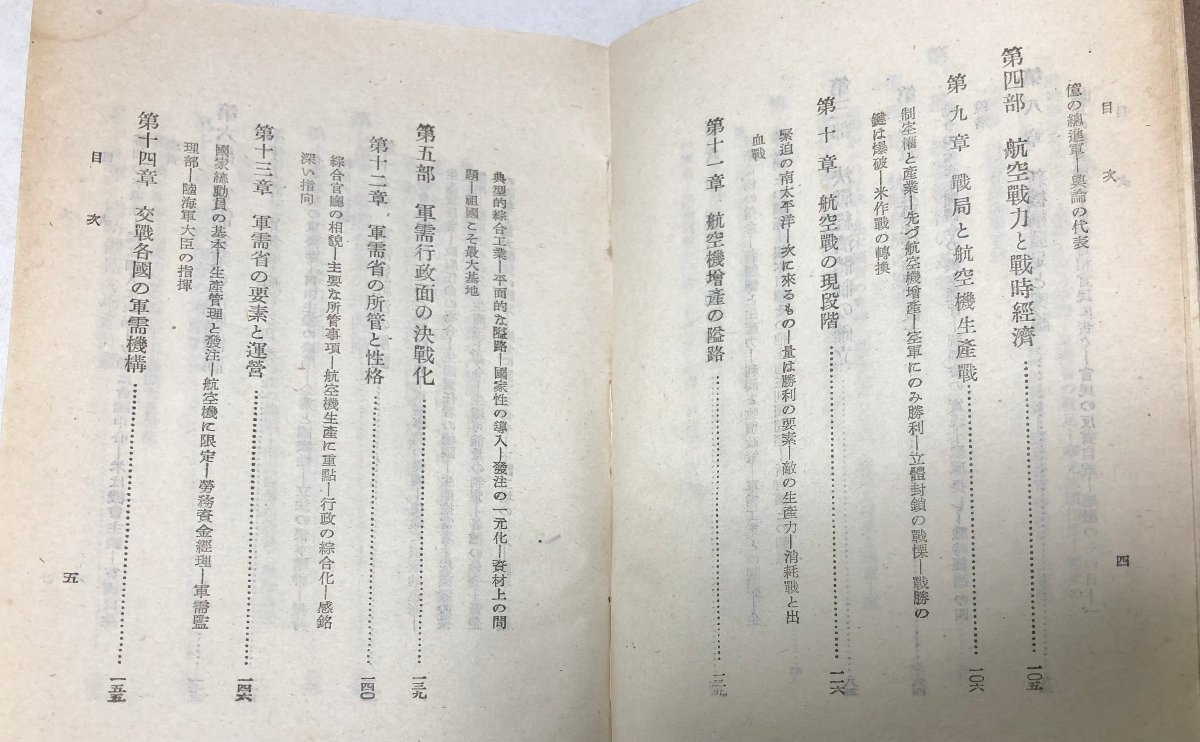 目次
四
億の總進軍―輿論の代表
第四部 航空戰力と戰時經濟……………一〇五
第九章 戰局と航空機生產戰……………一〇六
制空權と產業―先づ航空機增產―空軍にのみ勝利―立體封鎖の戰慄―戰勝の
鍵は爆破―米作戰の轉換
第十章 航空戰の現段階……………一一六
緊迫の南太平洋―次に來るもの―量は勝利の要素―敵の生產力―消耗戰と出
血戰
第十一章 航空機增產の隘路……………一二九
典型的綜合工業―平面的な隘路―國家性の導入―發注の一元化―資材上の問
題―祖國こそ最大基地
第五部 軍需行政面の決戰化……………一三九
第十二章 軍需省の所管と性格……………一四〇
綜合官廳の相貌―主要な所管事項―航空機生產に重點―行政の綜合化―感銘
深い指向
第十三章 軍需省の要素と運營……………一四六
國家總動員の基本―生產管理と發注―航空機に限定―勞務資金經理―軍需監
理部―陸海軍大臣の指揮
第十四章 交戰各國の軍需機構……………一五五
目次
五